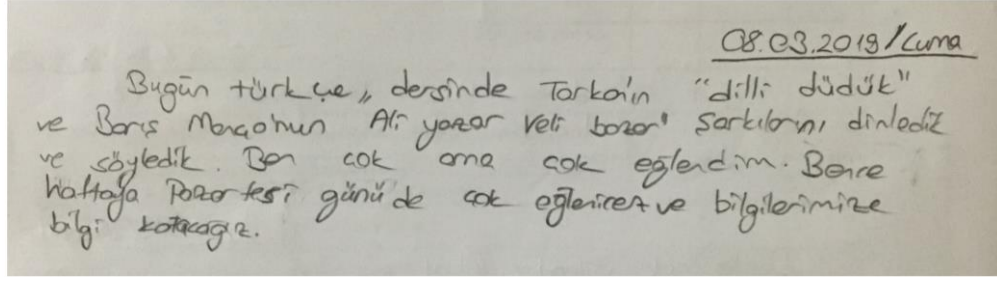 08.03.2019/Cuma
Bugün türkçe,, dersinde Tarka'ın "dilli düdük"
ve Barış Manço'nun Ali yazar Veli bozar" şarkılarını dinledik
ve söyledik. Ben çok ama çok eğlendim. Bence
haftaya Pazartesi günü de çok eğlenicez ve bilgilerimize
bilgi katacağız.